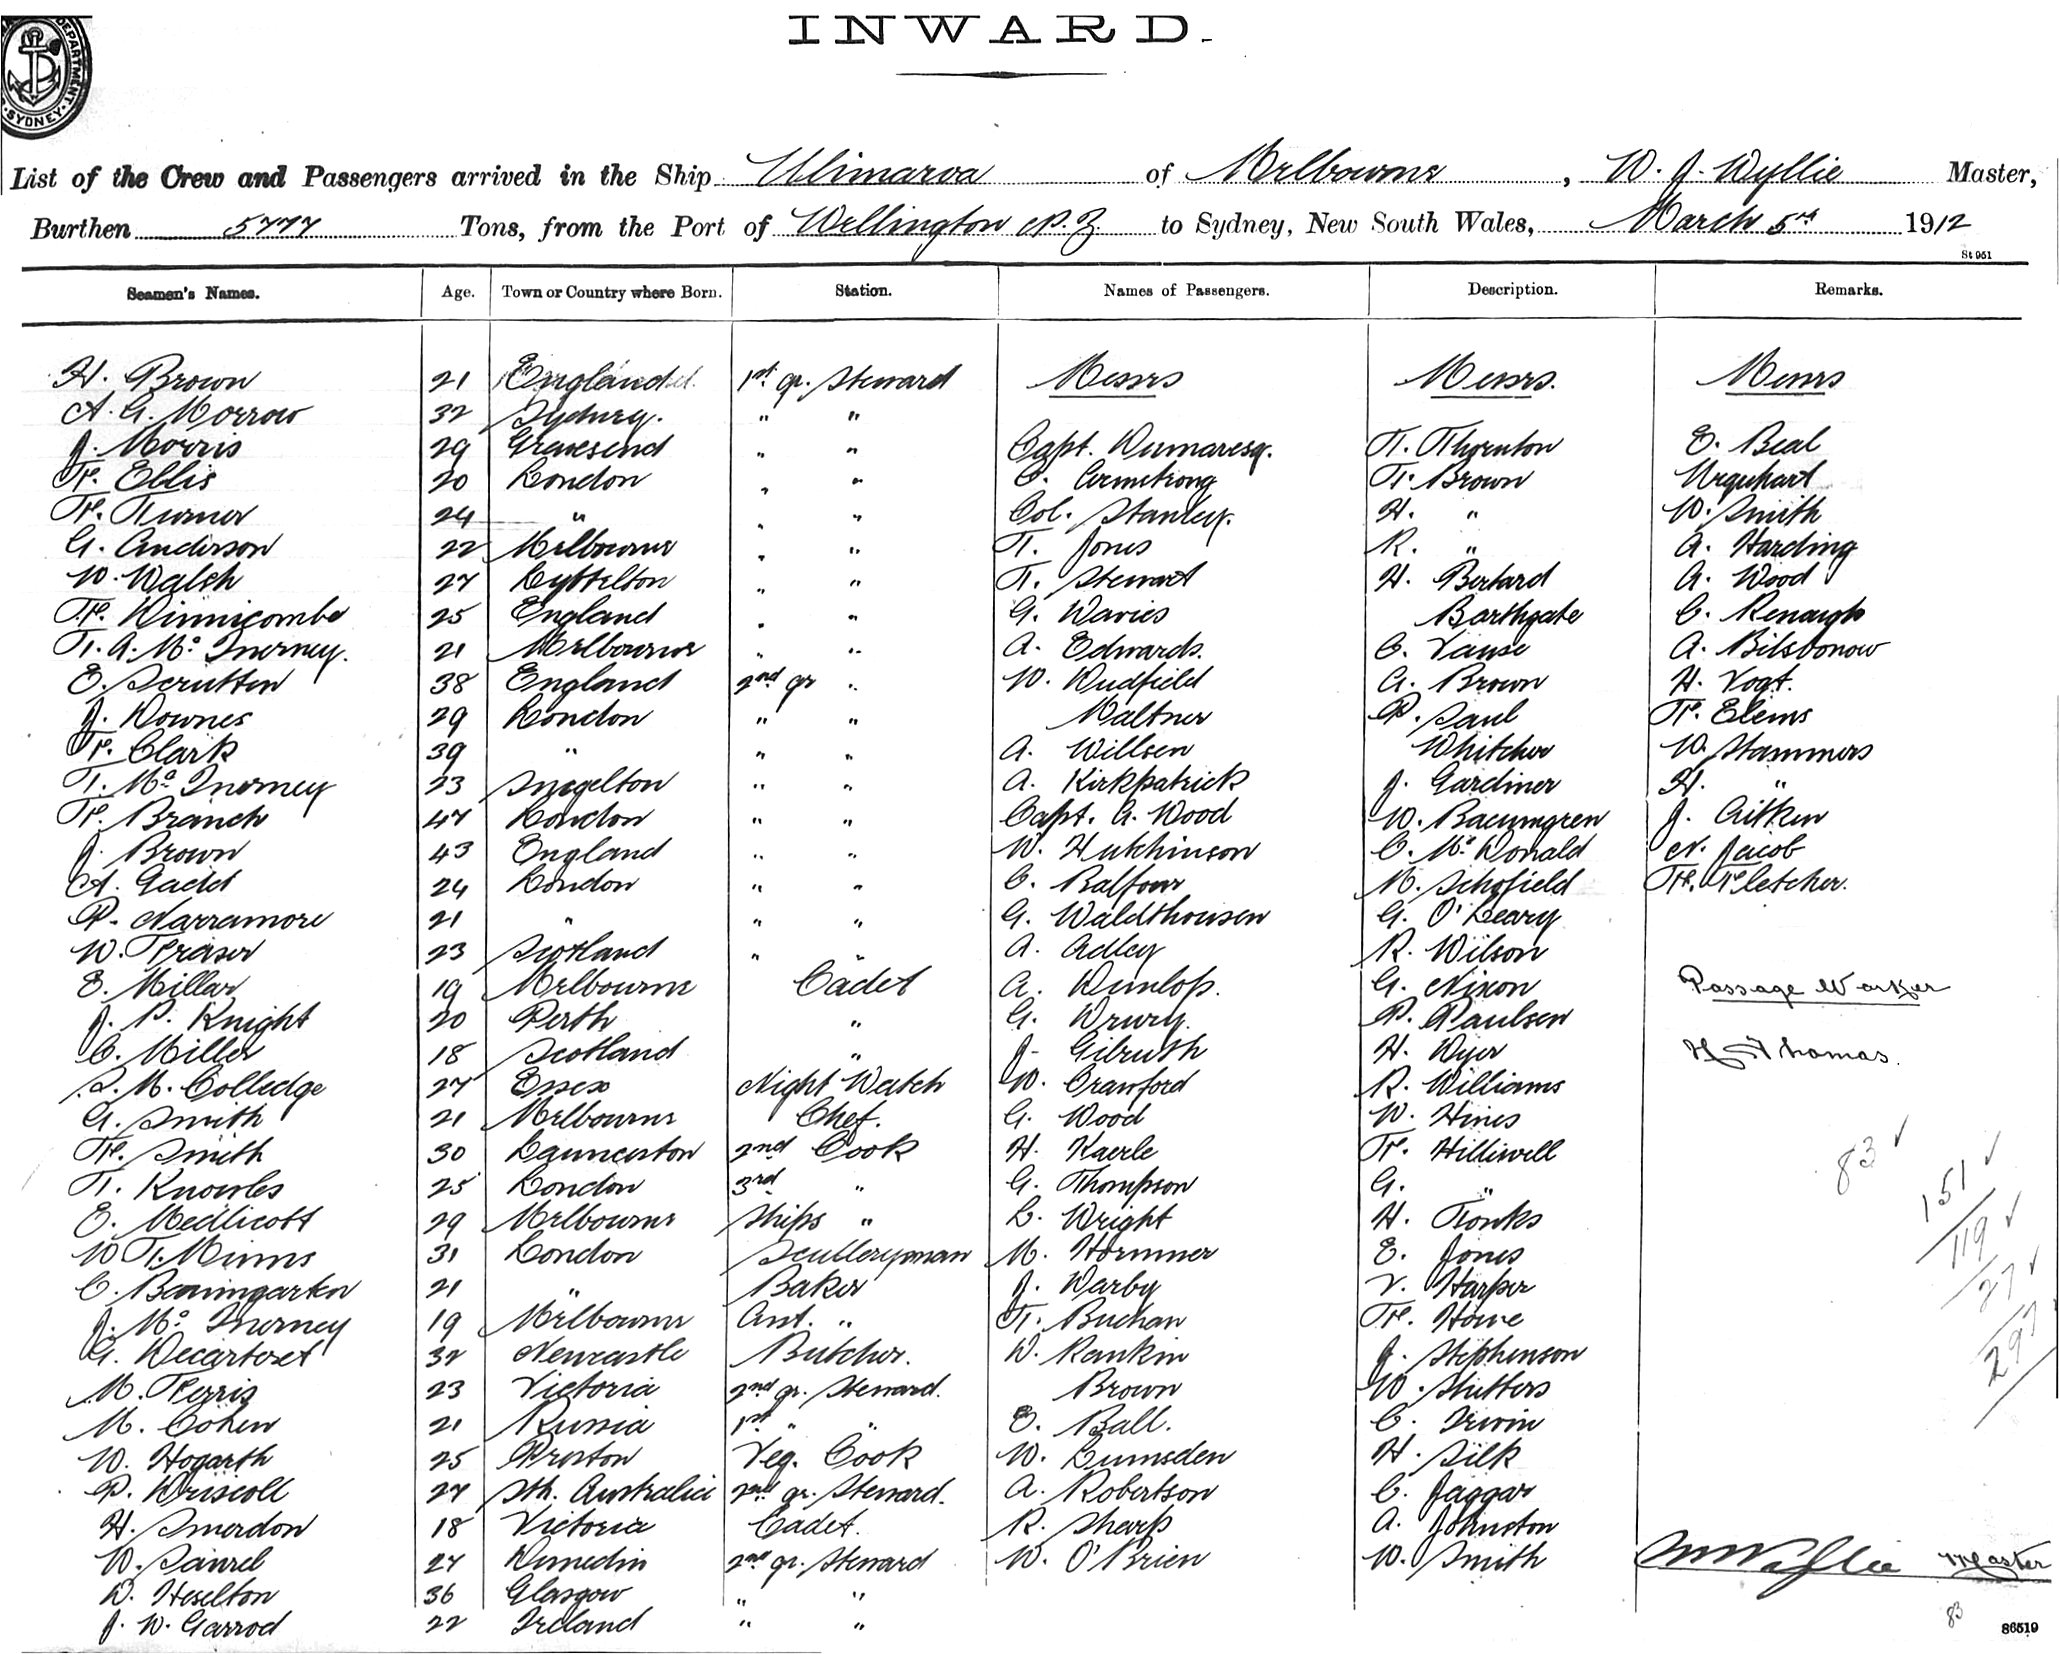 INWARD.
DEPARTMENT
SYDNEY
List of the Crew and Passengers arrived in the Ship Ulimaroa of Melbourne, W. J. Wyllie Master,
Burthen 5777 Tons, from the Port of Wellington N.Z. to Sydney, New South Wales, March 5th 1912
St 951
Seamen's Names. Age. Town or Country where Born. Station. Names of Passengers. Description. Remarks.
H. Brown 21 England 1st gr. Steward Messrs Messrs. Messrs
A. G. Morrow 32 Sydney. " "
J. Morris 29 Gravesend " " Capt. Dumaresq. T. Thornton E. Beal
F. Ellis 20 London " " C. Armstrong T. Brown Urquhart
F. Turner 24 " " " Col. Stanley. H. " W. Smith
G. Anderson 22 Melbourne " " T. Jones R. " A. Harding
W. Walsh 27 Lyttelton " " T. Stewart H. Bertard A. Wood
F. Winnicombe 25 England " " G. Davies Barthgate C. Renaugh
T. A. Mc Inerney. 21 Melbourne " " A. Edwards. C. Vause A. Bilsbonow
E. Scrutten 38 England 2nd gr " W. Dudfield G. Brown H. Vogt.
J. Downes 29 London " " Maltner P. Saul F. Elems
F. Clark 39 " " " A. Willsen Whitcher W. Stammers
T. Mc Inerney 23 Singelton " " A. Kirkpatrick J. Gardiner H. "
F. Branch 47 London " " Capt. A. Wood W. Baeumgren J. Aitken
J. Brown 43 England " " W. Hutchinson C. Mc Donald N. Jacob
A. Gadd 24 London " " C. Balfour M. Schofield F. Fletcher.
P. Narramore 21 " " " G. Waldthousen G. O'Leary
W. Fraser 23 Scotland " " A. Adley R. Wilson
E. Millar 19 Melbourne Cadet A. Dunlop. G. Nixon Passage Worker
J. P. Knight 20 Perth " G. Drury. P. Paulsen
C. Miller 18 Scotland " J. Gilruth H. Dyer H Thomas.
S. M. Colledge 27 Essex Night Watch W. Crawford R. Williams
G. Smith 21 Melbourne Chef. G. Wood W. Hines
F. Smith 30 Launceston 2nd Cook H. Kaerle F. Hilliwell 83
T. Knowles 25 London 3rd " G. Thompson G. " 151
E. Medlicott 29 Melbourne Ships " L. Wright H. Tonks 119
W T. Minns 31 London Sculleryman M. Hormner E. Jones
C. Baumgarten 21 " Baker J. Darby V. Harper 27
J. Mc Inerney 19 Melbourne Asst. " T. Buchan F. Howe
G. Decarteret 32 Newcastle Butcher. D. Rankin J. Stephenson 297
M. Ferris 23 Victoria 2nd gr. Steward. Brown W. Shutters
M. Cohen 21 Russia 1st " " E. Ball. C. Irwin
W. Hogarth 25 Preston Veg. Cook W. Lumsden H. Silk
P. Driscoll 27 Sth. Australia 2nd gr. Steward. A. Robertson C. Jaggar
H. Smerdon 18 Victoria Cadet. R. Sharp A. Johnston
W. Saurel 27 Dunedin 2nd gr. Steward W. O'Brien W. Smith W J Wyllie Master
D. Heselton 36 Glasgow " "
J. W. Garrod 22 Ireland " "
83
86519